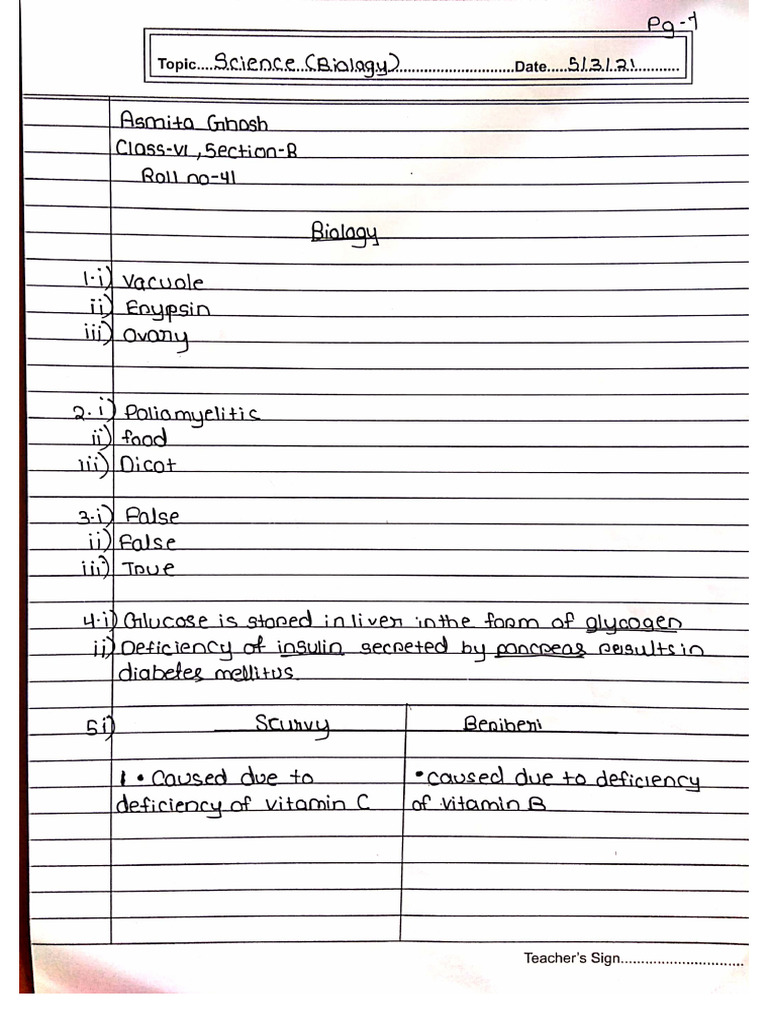 Pg-1
Topic....Science (Biology)....Date....5/3/21....
Asmita Ghosh
Class-VI, Section-B
Roll no-41
Biology
1.i) Vacuole
ii) Erypsin
iii) Ovary
2.i) Poliomyelitic
ii) food
iii) Dicot
3.i) False
ii) False
iii) True
4.i) Glucose is stored in liver in the form of glycogen
ii) Deficiency of insulin secreted by pancreas results in
diabetes mellitus.
5i) Scurvy Beriberi
1 • Caused due to • caused due to deficiency
deficiency of vitamin C of vitamin B
Teacher's Sign..............................